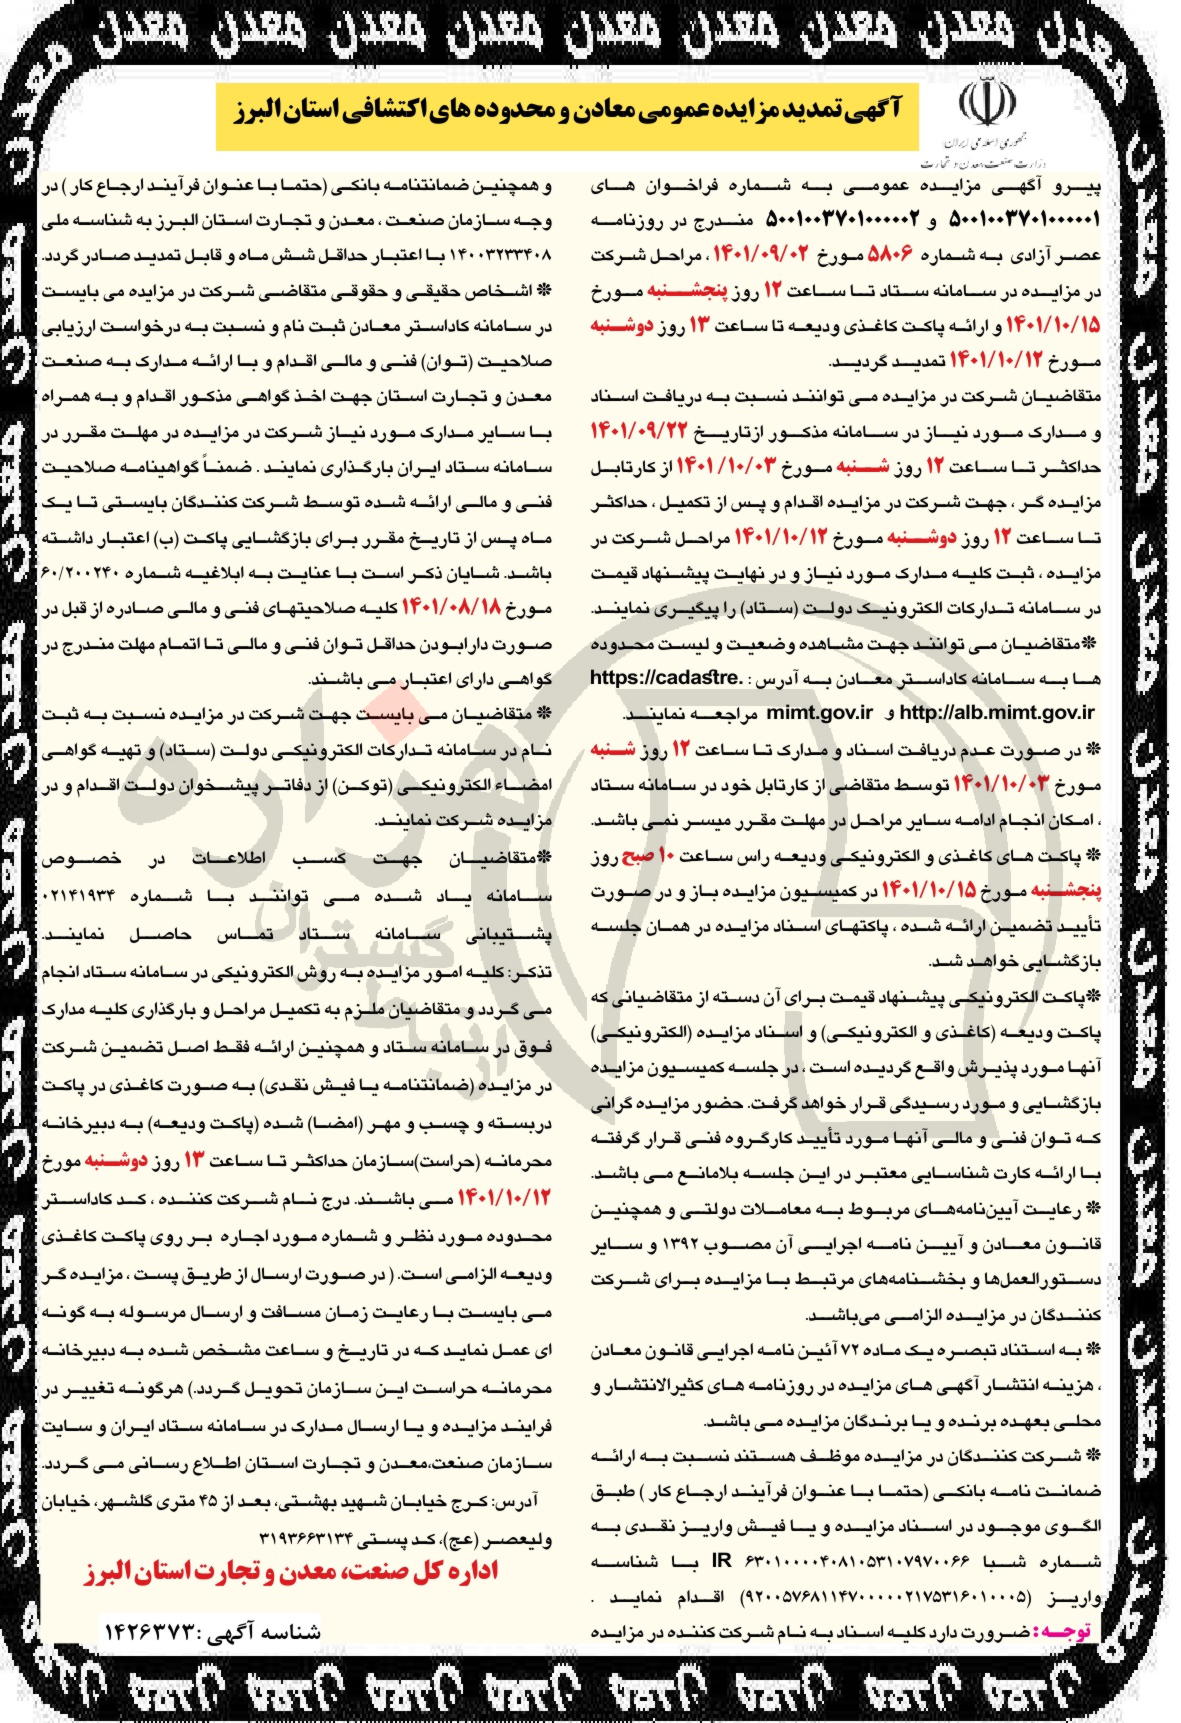 معدن معدن معدن معدن معدن معدن معدن معدن معدن
جمهوری اسلامی ایران
وزارت صنعت، معدن و تجارت
آگهی تمدید مزایده عمومی معادن و محدوده های اکتشافی استان البرز
پیرو آگهی مزایده عمومی به شماره فراخوان های
۵۰۰۱۰۰۳۷۰۱۰۰۰۰۰۱ و ۵۰۰۱۰۰۳۷۰۱۰۰۰۰۰۲ مندرج در روزنامه
عصر آزادی به شماره ۵۸۰۶ مورخ ۱۴۰۱/۰۹/۰۲ ، مراحل شرکت
در مزایده در سامانه ستاد تا ساعت ۱۲ روز پنجشنبه مورخ
۱۴۰۱/۱۰/۱۵ و ارائه پاکت کاغذی ودیعه تا ساعت ۱۳ روز دوشنبه
مورخ ۱۴۰۱/۱۰/۱۲ تمدید گردید.
متقاضیان شرکت در مزایده می توانند نسبت به دریافت اسناد
و مدارک مورد نیاز در سامانه مذکور ازتاریخ ۱۴۰۱/۰۹/۲۲
حداکثر تا ساعت ۱۲ روز شنبه مورخ ۱۴۰۱/۱۰/۰۳ از کارتابل
مزایده گر ، جهت شرکت در مزایده اقدام و پس از تکمیل ، حداکثر
تا ساعت ۱۲ روز دوشنبه مورخ ۱۴۰۱/۱۰/۱۲ مراحل شرکت در
مزایده ، ثبت کلیه مدارک مورد نیاز و در نهایت پیشنهاد قیمت
در سامانه تدارکات الکترونیک دولت (ستاد) را پیگیری نمایند.
❊متقاضیان می توانند جهت مشاهده وضعیت و لیست محدوده
ها به سامانه کاداستر معادن به آدرس : https://cadastre.
mimt.gov.ir و http://alb.mimt.gov.ir مراجعه نمایند.
❊ در صورت عدم دریافت اسناد و مدارک تا ساعت ۱۲ روز شنبه
مورخ ۱۴۰۱/۱۰/۰۳ توسط متقاضی از کارتابل خود در سامانه ستاد
، امکان انجام ادامه سایر مراحل در مهلت مقرر میسر نمی باشد.
❊ پاکت های کاغذی و الکترونیکی ودیعه راس ساعت ۱۰ صبح روز
پنجشنبه مورخ ۱۴۰۱/۱۰/۱۵ در کمیسیون مزایده باز و در صورت
تأیید تضمین ارائه شده ، پاکتهای اسناد مزایده در همان جلسه
بازگشایی خواهد شد.
❊پاکت الکترونیکی پیشنهاد قیمت برای آن دسته از متقاضیانی که
پاکت ودیعه (کاغذی و الکترونیکی) و اسناد مزایده (الکترونیکی)
آنها مورد پذیرش واقع گردیده است ، در جلسه کمیسیون مزایده
بازگشایی و مورد رسیدگی قرار خواهد گرفت. حضور مزایده گرانی
که توان فنی و مالی آنها مورد تأیید کارگروه فنی قرار گرفته
با ارائه کارت شناسایی معتبر در این جلسه بلامانع می باشد.
❊ رعایت آیین‌نامه‌های مربوط به معاملات دولتی و همچنین
قانون معادن و آیین نامه اجرایی آن مصوب ۱۳۹۲ و سایر
دستورالعمل‌ها و بخشنامه‌های مرتبط با مزایده برای شرکت
کنندگان در مزایده الزامی می‌باشد.
❊ به استناد تبصره یک ماده ۷۲ آئین نامه اجرایی قانون معادن
، هزینه انتشار آگهی های مزایده در روزنامه های کثیرالانتشار و
محلی بعهده برنده و یا برندگان مزایده می باشد.
❊ شرکت کنندگان در مزایده موظف هستند نسبت به ارائه
ضمانت نامه بانکی (حتما با عنوان فرآیند ارجاع کار ) طبق
الگوی موجود در اسناد مزایده و یا فیش واریز نقدی به
شماره شبا IR ۶۳۰۱۰۰۰۰۴۰۸۱۰۵۳۱۰۷۹۷۰۰۶۶ با شناسه
واریز (۹۲۰۰۵۷۶۸۱۱۴۷۰۰۰۰۰۲۱۷۵۳۱۶۰۱۰۰۰۵) اقدام نماید .
توجه : ضرورت دارد کلیه اسناد به نام شرکت کننده در مزایده
و همچنین ضمانتنامه بانکی (حتما با عنوان فرآیند ارجاع کار ) در
وجه سازمان صنعت ، معدن و تجارت استان البرز به شناسه ملی
۱۴۰۰۳۲۳۳۴۰۸ با اعتبار حداقل شش ماه و قابل تمدید صادر گردد.
❊ اشخاص حقیقی و حقوقی متقاضی شرکت در مزایده می بایست
در سامانه کاداستر معادن ثبت نام و نسبت به درخواست ارزیابی
صلاحیت (توان) فنی و مالی اقدام و با ارائه مدارک به صنعت
معدن و تجارت استان جهت اخذ گواهی مذکور اقدام و به همراه
با سایر مدارک مورد نیاز شرکت در مزایده در مهلت مقرر در
سامانه ستاد ایران بارگذاری نمایند . ضمناً گواهینامه صلاحیت
فنی و مالی ارائه شده توسط شرکت کنندگان بایستی تا یک
ماه پس از تاریخ مقرر برای بازگشایی پاکت (ب) اعتبار داشته
باشد. شایان ذکر است با عنایت به ابلاغیه شماره ۶۰/۲۰۰۲۴۰
مورخ ۱۴۰۱/۰۸/۱۸ کلیه صلاحیتهای فنی و مالی صادره از قبل در
صورت دارابودن حداقل توان فنی و مالی تا اتمام مهلت مندرج در
گواهی دارای اعتبار می باشند.
❊ متقاضیان می بایست جهت شرکت در مزایده نسبت به ثبت
نام در سامانه تدارکات الکترونیکی دولت (ستاد) و تهیه گواهی
امضاء الکترونیکی (توکن) از دفاتر پیشخوان دولت اقدام و در
مزایده شرکت نمایند.
❊متقاضیان جهت کسب اطلاعات در خصوص
سامانه یاد شده می توانند با شماره ۰۲۱۴۱۹۳۴
پشتیبانی سامانه ستاد تماس حاصل نمایند.
تذکر: کلیه امور مزایده به روش الکترونیکی در سامانه ستاد انجام
می گردد و متقاضیان ملزم به تکمیل مراحل و بارگذاری کلیه مدارک
فوق در سامانه ستاد و همچنین ارائه فقط اصل تضمین شرکت
در مزایده (ضمانتنامه یا فیش نقدی) به صورت کاغذی در پاکت
دربسته و چسب و مهر (امضا) شده (پاکت ودیعه) به دبیرخانه
محرمانه (حراست)سازمان حداکثر تا ساعت ۱۳ روز دوشنبه مورخ
۱۴۰۱/۱۰/۱۲ می باشند. درج نام شرکت کننده ، کد کاداستر
محدوده مورد نظر و شماره مورد اجاره بر روی پاکت کاغذی
ودیعه الزامی است. ( در صورت ارسال از طریق پست ، مزایده گر
می بایست با رعایت زمان مسافت و ارسال مرسوله به گونه
ای عمل نماید که در تاریخ و ساعت مشخص شده به دبیرخانه
محرمانه حراست این سازمان تحویل گردد.) هرگونه تغییر در
فرایند مزایده و یا ارسال مدارک در سامانه ستاد ایران و سایت
سازمان صنعت،معدن و تجارت استان اطلاع رسانی می گردد.
آدرس: کرج خیابان شهید بهشتی، بعد از ۴۵ متری گلشهر، خیابان
ولیعصر (عج)، کد پستی ۳۱۹۳۶۶۳۱۳۴
اداره کل صنعت، معدن و تجارت استان البرز
شناسه آگهی :۱۴۲۶۳۷۳
هزاره